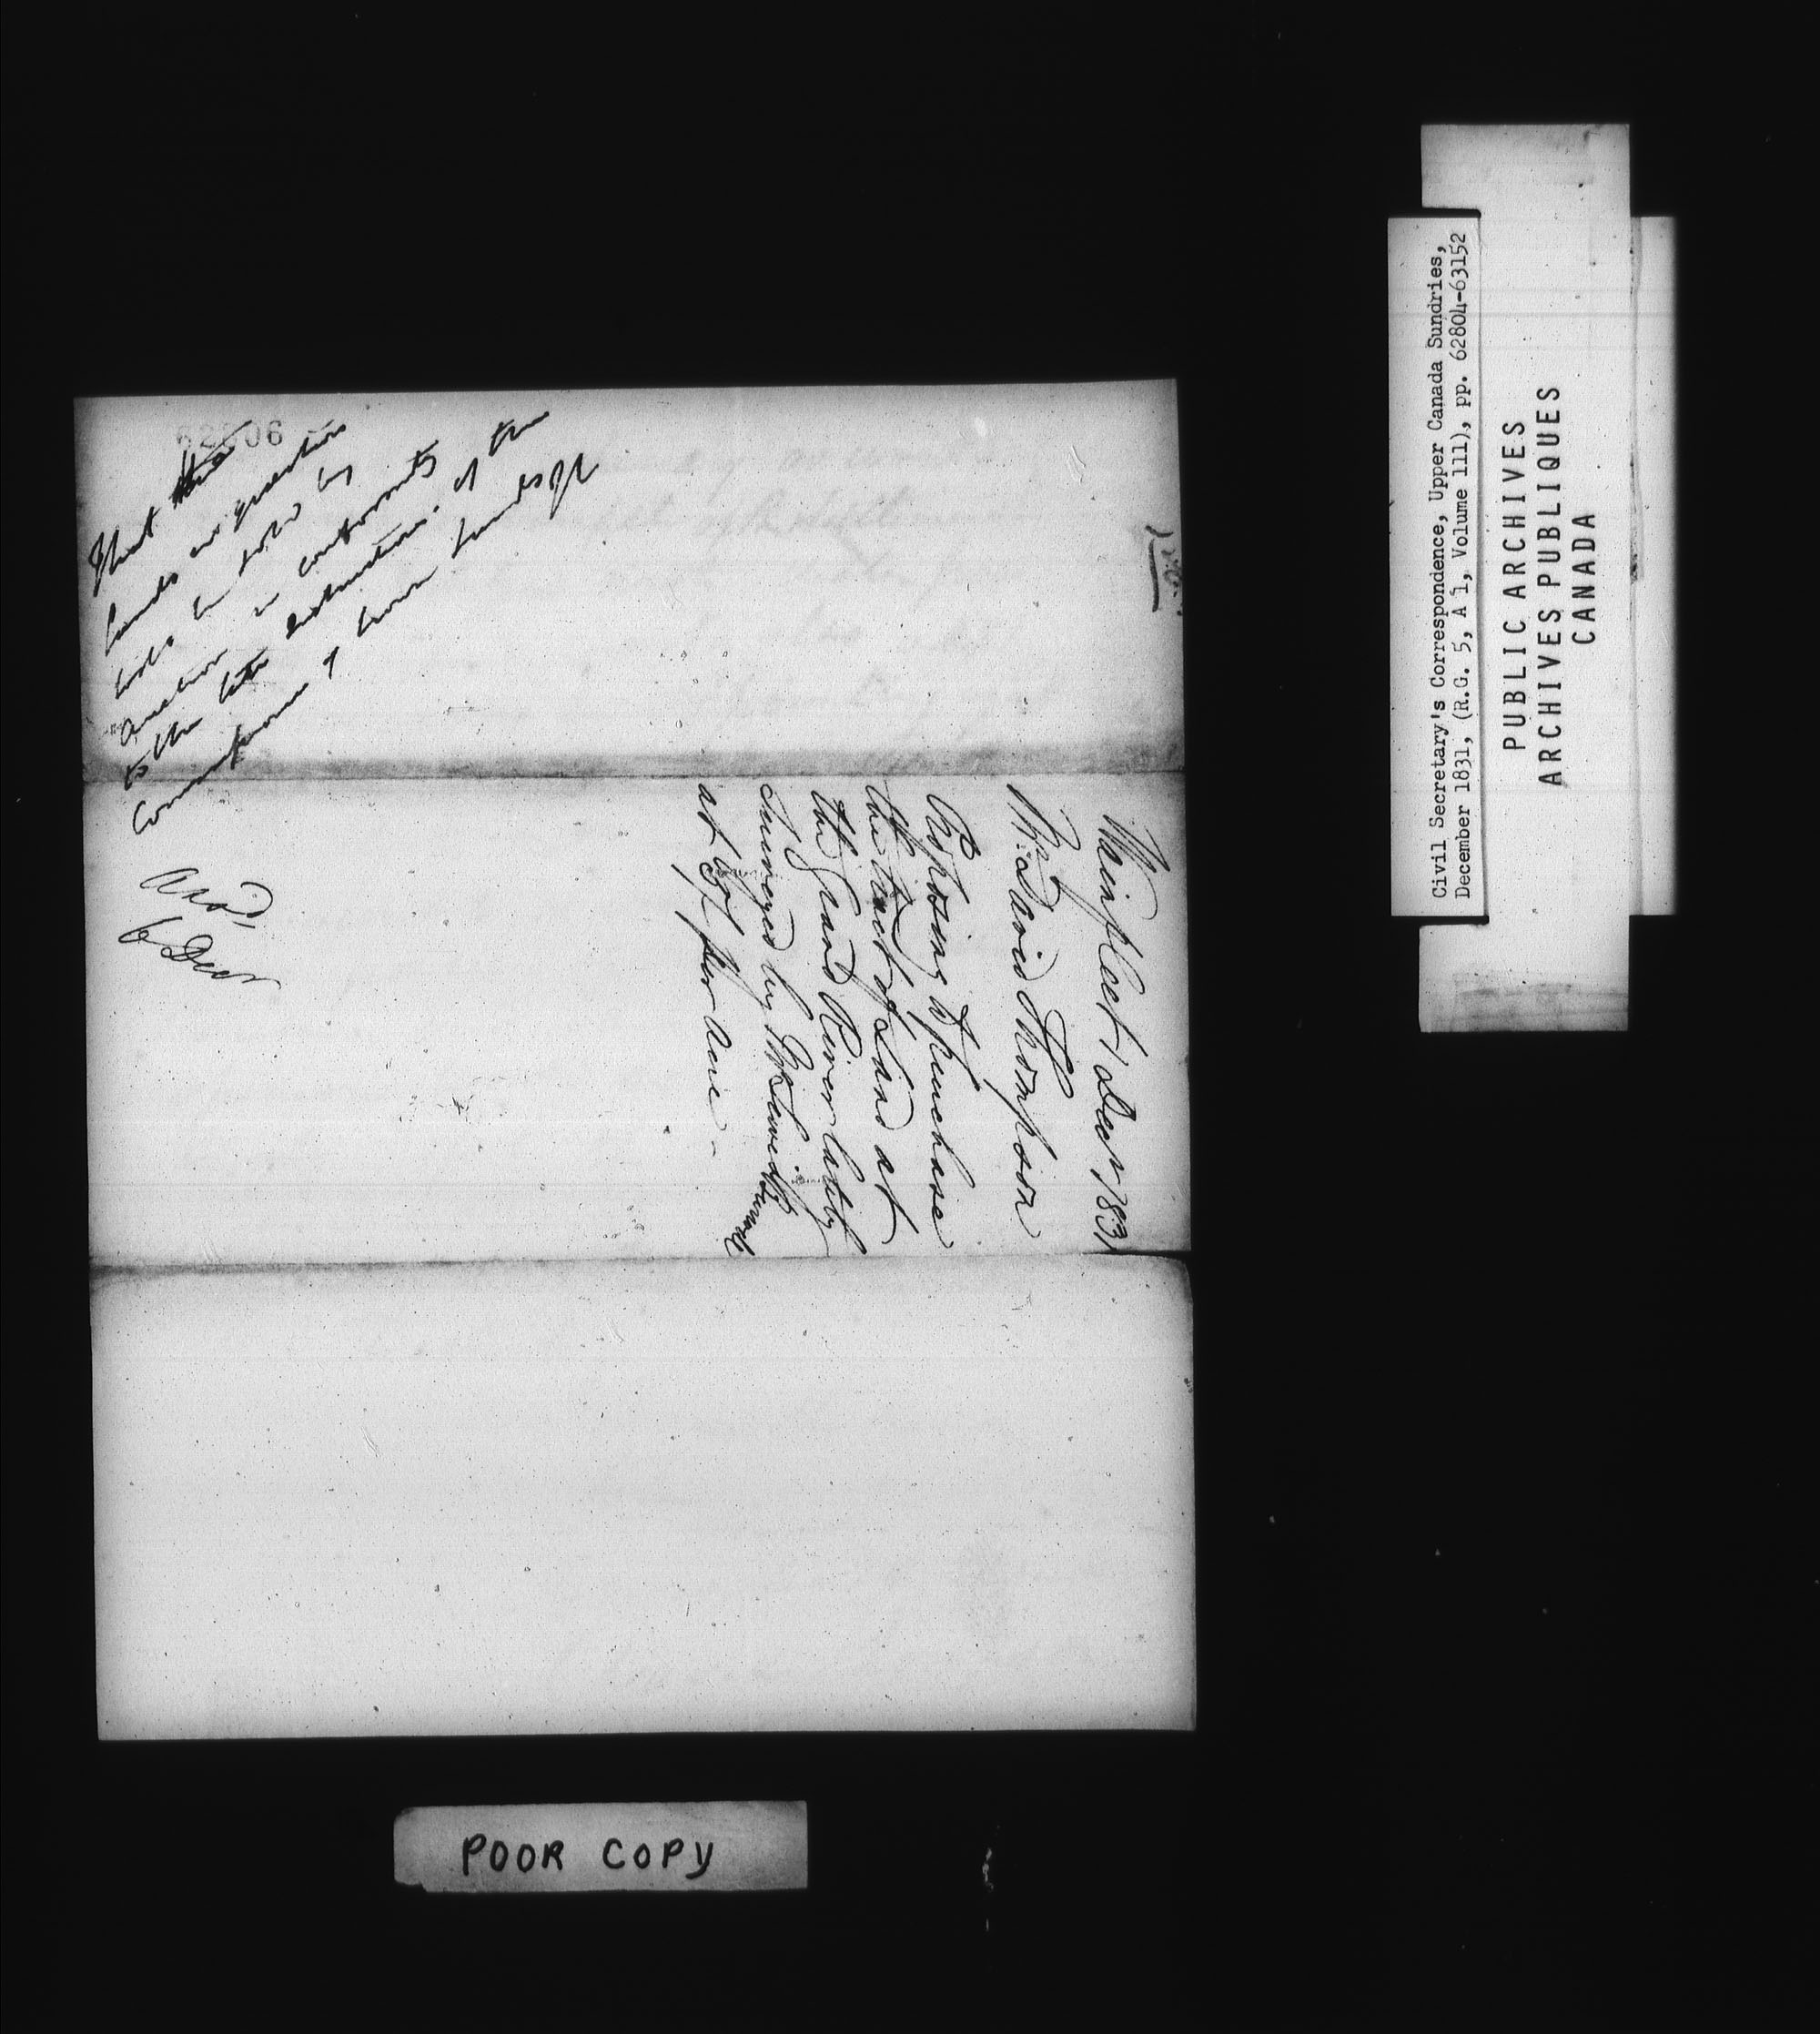 62806
That the
lands in question
will be sold by
Auction in conformity
to the late instructions of the
Commissioner of Crown Lands
Ansd,
6 Decr
Wainfleet 1 Decr 1831
Mr. David Thompson
Proposing to purchase
the tract of Land at
the Grand River lately
surveyed by Mr Lewis Burwell
at per Acre -
Civil Secretary's Correspondence, Upper Canada Sundries,
December 1831, (R.G. 5, A 1, Volume 111), pp. 62804-63152
PUBLIC ARCHIVES
ARCHIVES PUBLIQUES
CANADA
POOR COPY